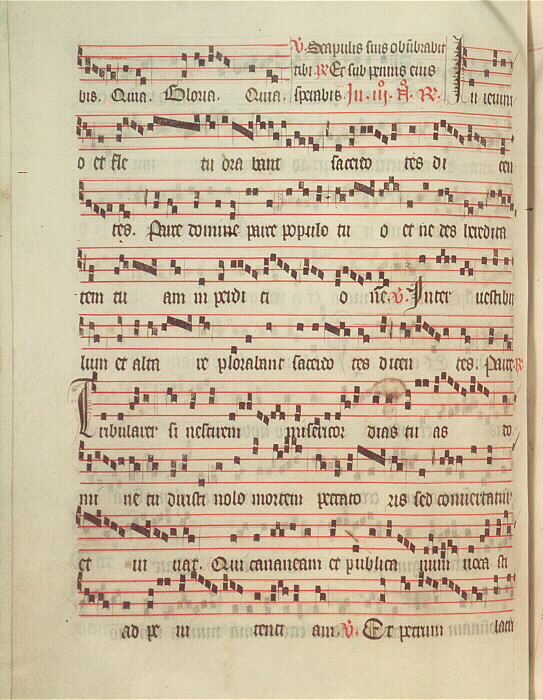 bis. Quia. Gloria. Quia. ℣. Scapulis suis obūbrabit
tibi ℟ Et sub pennis eius
sperabis In
o et fle tu dra bant sacerdo tes di cen
tes. Parce domine parce populo tu o et ne des heredita
tem tu am in perdi ti o nē. ℣. Inter vestibu
lum et alta re plorabant sacerdo tes dicen tes. Parce ℟
Tribularer si nescirem misericor dias tu as do
mi ne tu dixisti nolo mortem peccato ris sed conuertatur
et ui uat. Qui cananeam et publica num uoca sti
ad pe ni tenci am. ℣. Et petrum lacri